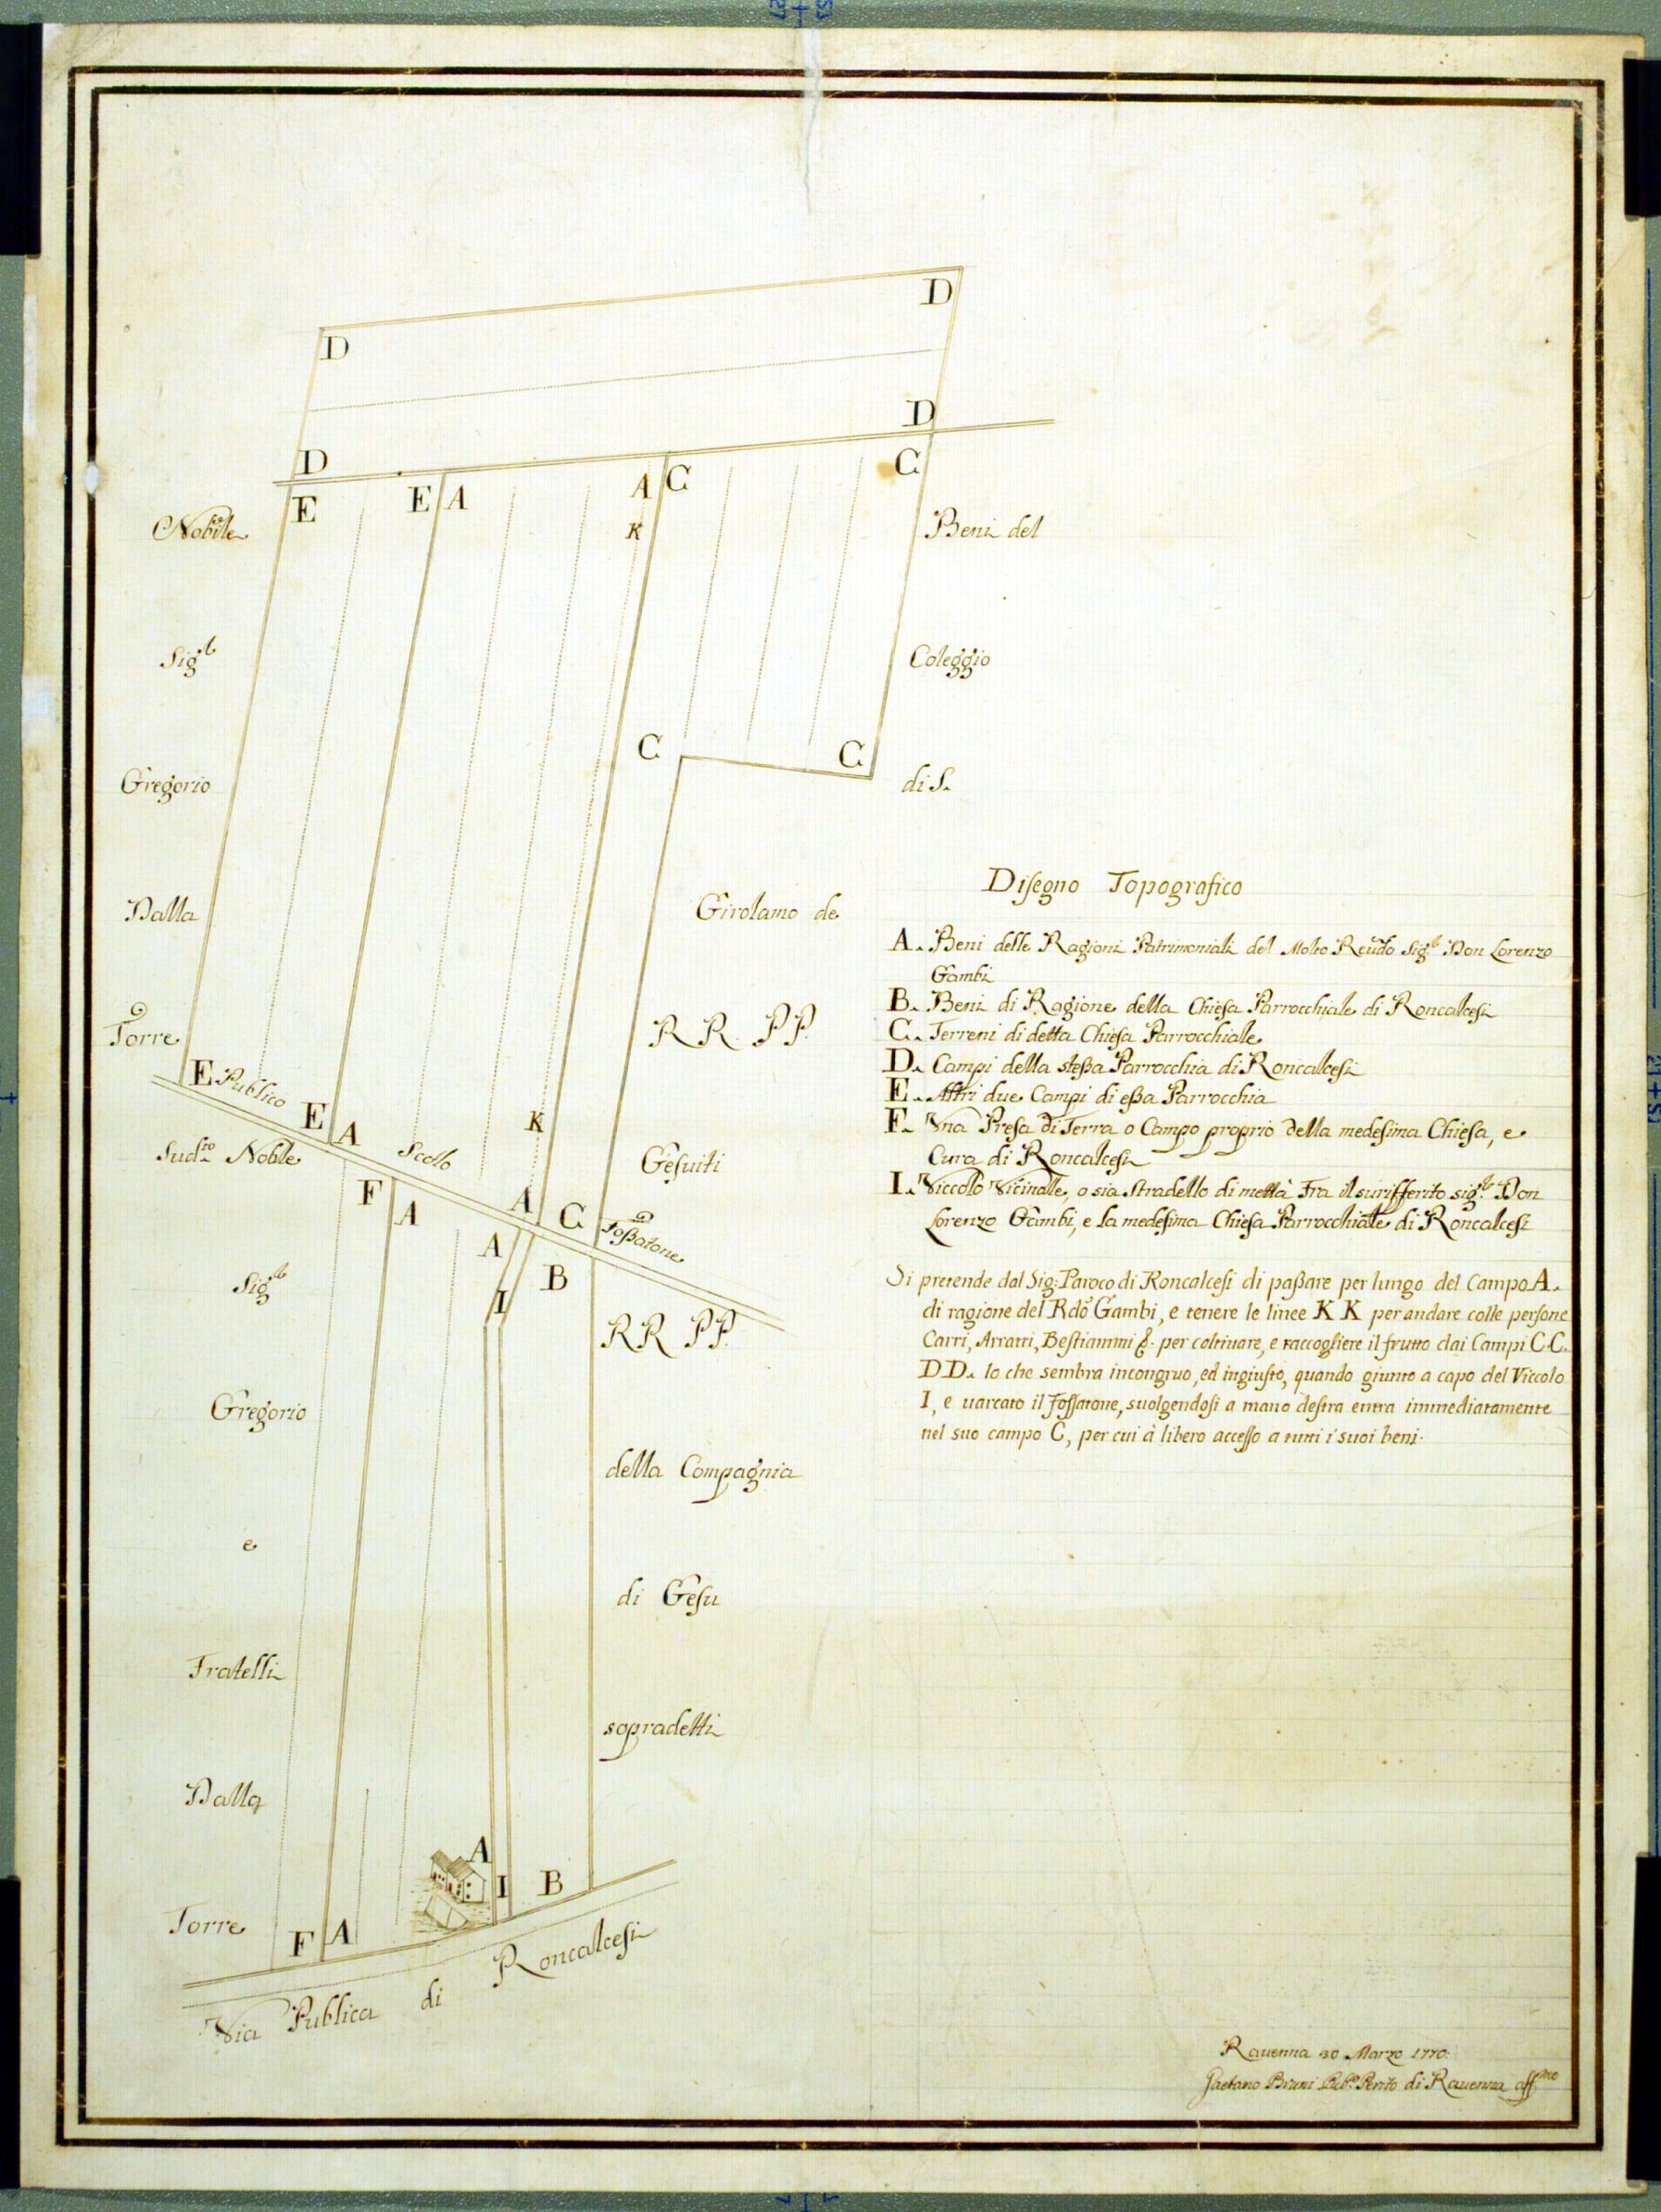 D
D
D
D
E
E
A
A
C
C
K
Nobile
Sig.
Gregorio
Dalla
Torre
Beni del
Coleggio
di S.
Girolamo de
RR. PP.
Gesuiti
C
C
E
Publico
E
A
Scolo
K
A
C
Foßatone
Sud.to Noble
F
A
A
B
I
Sig.
Gregorio
e
Fratelli
Dalla
Torre
RR PP.
della Compagnia
di Gesu
sopradetti
A
I
B
F
A
Via Publica di Roncalcesi
Disegno Topografico
A. Beni delle Ragioni Patrimoniali del Molto Reudo Sig. Don Lorenzo
Gambi
B. Beni di Ragione della Chiesa Parrocchiale di Roncalcesi
C. Terreni di detta Chiesa Parrocchiale
D. Campi della steßa Parrocchia di Roncalcesi
E. Altri due Campi di eßa Parrocchia
F. Vna Presa di Terra o Campo proprio della medesima Chiesa, e
Cura di Roncalcesi
I. Viccolo Vicinalle, o sia Stradello di mettà Fra il surifferito sig. Don
Lorenzo Gambi, e la medesima Chiesa Parrocchiale di Roncalcesi
Si pretende dal Sig: Paroco di Roncalcesi di paßare per lungo del Campo A.
di ragione del Rdo Gambi, e tenere le linee K K per andare colle persone
Carri, Arratri, Bestiammi &. per coltiuare, e raccogliere il frutto dai Campi C.C.
D D. lo che sembra incongruo, ed ingiusto, quando giunto a capo del Viccolo
I, e uarcato il Fossatone, suolgendosi a mano destra entra immediatamente
nel suo campo C, per cui à libero accesso a tutti i suoi beni.
Rauenna 30 Marzo 1770.
Gaetano Bruni Pub.o Perito di Rauenna aff.mo